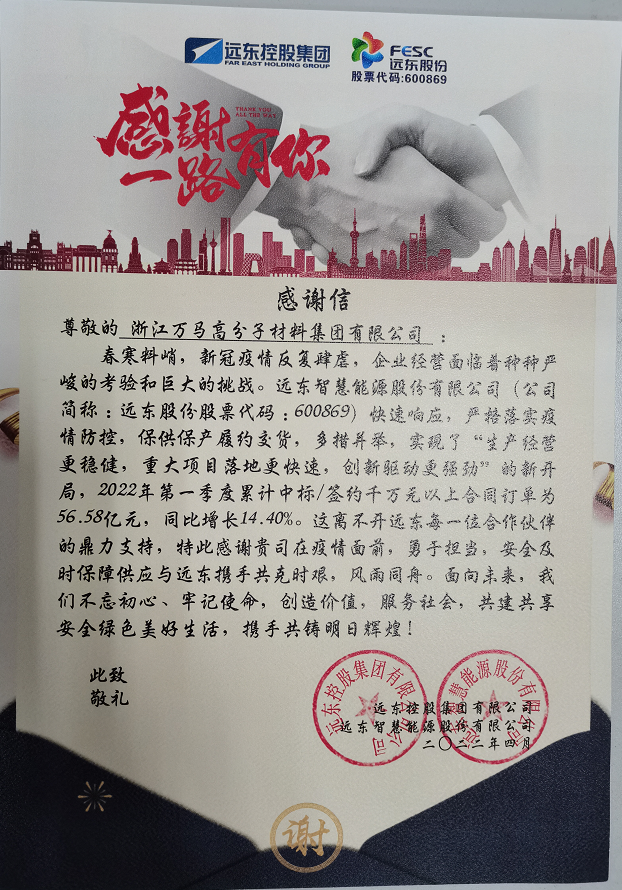 远东控股集团
FAR EAST HOLDING GROUP
FESC
远东股份
股票代码:600869
THANK YOU
ALL THE WAY
感謝
一路有你
感谢信
尊敬的 浙江万马高分子材料集团有限公司 ：
春寒料峭，新冠疫情反复肆虐，企业经营面临着种种严
峻的考验和巨大的挑战。远东智慧能源股份有限公司（公司
简称：远东股份股票代码：600869）快速响应，严格落实疫
情防控，保供保产履约交货，多措并举，实现了“生产经营
更稳健，重大项目落地更快速，创新驱动更强劲”的新开
局，2022年第一季度累计中标/签约千万元以上合同订单为
56.58亿元，同比增长14.40%。这离不开远东每一位合作伙伴
的鼎力支持，特此感谢贵司在疫情面前，勇于担当，安全及
时保障供应与远东携手共克时艰，风雨同舟。面向未来，我
们不忘初心、牢记使命，创造价值，服务社会，共建共享
安全绿色美好生活，携手共铸明日辉煌！
此致
敬礼
远东控股集团有限公司
远东智慧能源股份有限公司
二〇二二年四月
远东控股集团有限公司
远东智慧能源股份有限公司
谢